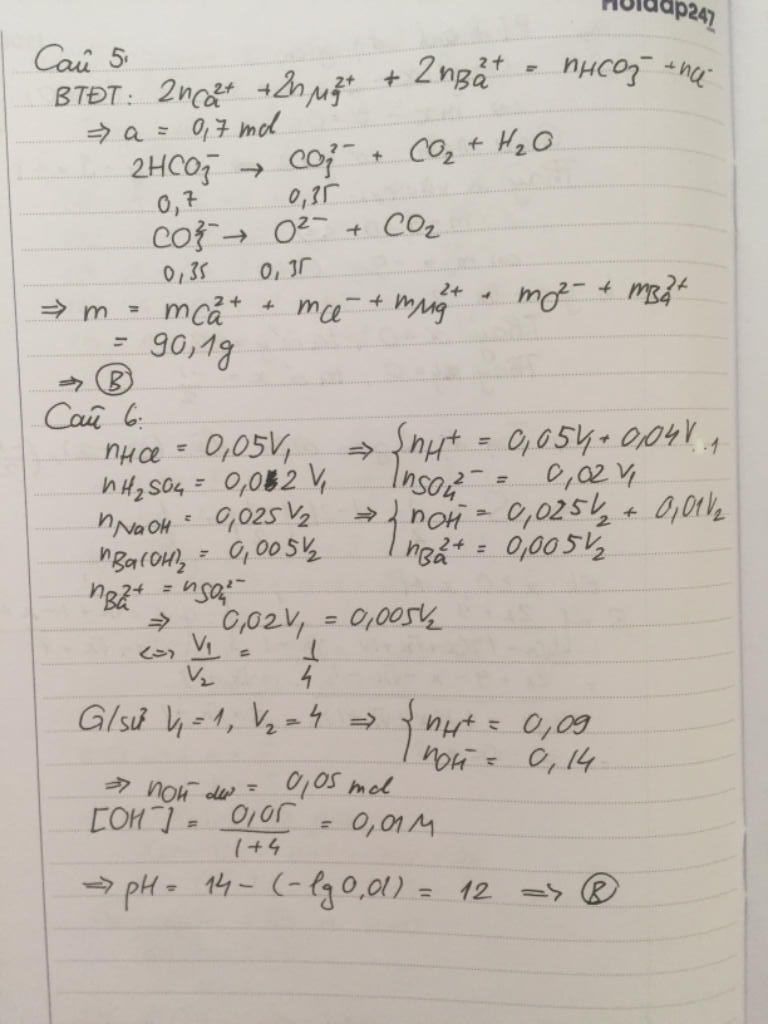 Hoidap247
Câu 5:
BTĐT: 2nCa²⁺ + 2nMg²⁺ + 2nBa²⁺ = nHCO₃⁻ + nCl⁻
⇒ a = 0,7 mol
2HCO₃⁻ → CO₃²⁻ + CO₂ + H₂O
0,7 0,35
CO₃²⁻ → O²⁻ + CO₂
0,35 0,35
⇒ m = mCa²⁺ + mCl⁻ + mMg²⁺ + mO²⁻ + mBa²⁺
= 90,1g
⇒ Ⓑ
Câu 6:
nHCl = 0,05V₁ ⇒ { nH⁺ = 0,05V₁ + 0,04V₁
nH₂SO₄ = 0,02 V₁ nSO₄²⁻ = 0,02 V₁
nNaOH = 0,025V₂ ⇒ { nOH⁻ = 0,025V₂ + 0,01V₂
nBa(OH)₂ = 0,005V₂ nBa²⁺ = 0,005V₂
nBa²⁺ = nSO₄²⁻
⇒ 0,02V₁ = 0,005V₂
<=> V₁/V₂ = 1/4
G/sử V₁ = 1, V₂ = 4 ⇒ { nH⁺ = 0,09
nOH⁻ = 0,14
⇒ nOH⁻ dư = 0,05 mol
[OH⁻] = 0,05/(1+4) = 0,01M
⇒ pH = 14 - (-lg0,01) = 12 ⇒ Ⓑ